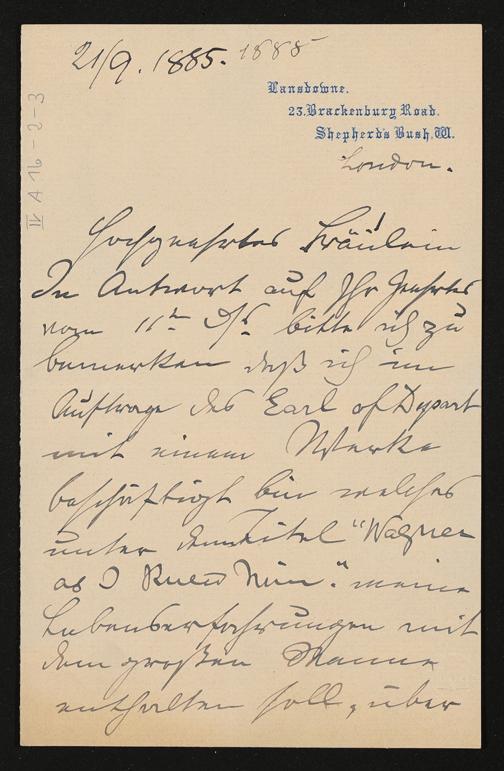 21/9. 1885. 1888
Lansdowne.
23. Brackenbury Road.
Shepherd's Bush. W.
London.
IV A 16-2-3
Hochgeehrtes Fräulein!
In Antwort auf Ihr Geehrtes
vom 11t ds. bitte ich zu
bemerken daß ich im
Auftrage des Earl of Dysart
mit einem Werke
beschäftigt bin welches
unter dem Titel "Wagner
as I Knew Him." meine
Lebenserfahrungen mit
dem großen Manne
enthalten soll, über